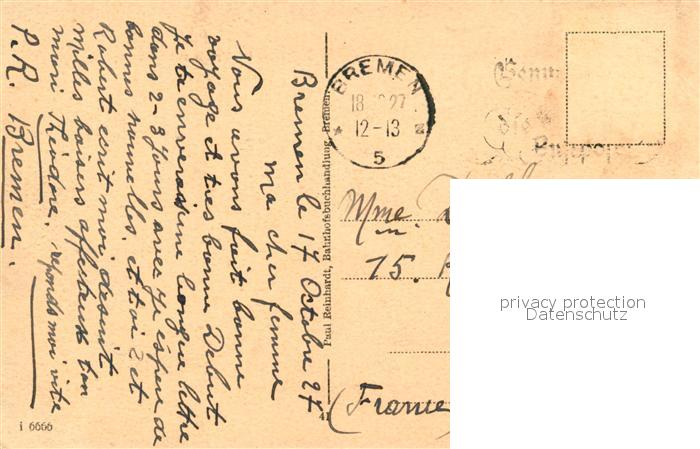 Bremen le 17 Octobre 27
ma cher femme
Nous avons fait bonne
voyage et tres bonne Debut
Je t'enverai une longue lettre
dans 2-3 Jours avec Je espere de
bonnes nouvelles. et toi 2 et
Robert ecrit moi desuit
Milles baisers affectueux ton
mari Theodore. reponds moi vite
P.R. Bremen.
Paul Reinhardt, Bahnhofsbuchhandlung, Bremen
41
i 6666
BREMEN
18 10 27
12-13
5
Mme.
75.
(France
privacy protection
Datenschutz